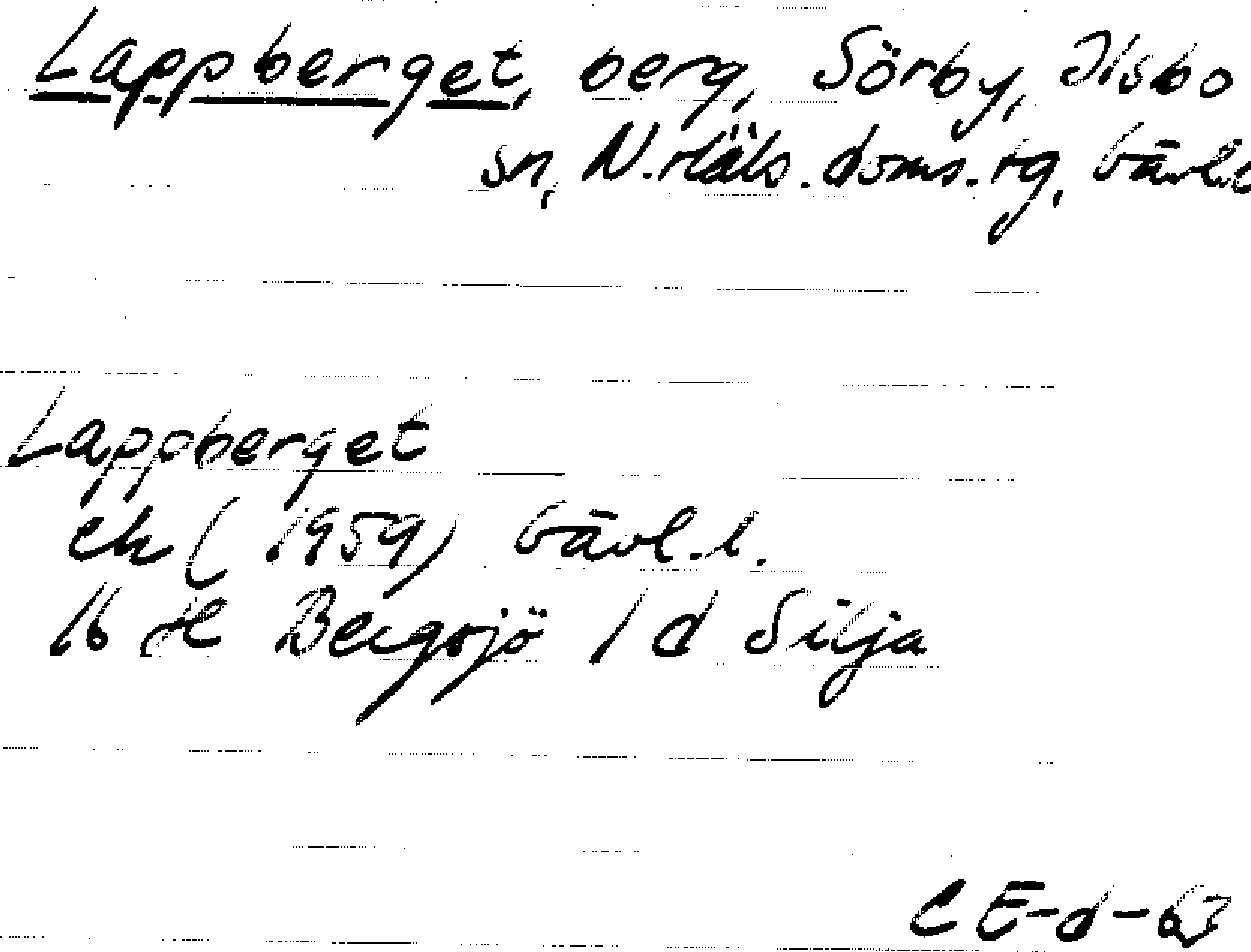 Lappberget, berg, Sörby, Ilsbo
sn, N. Häls. doms. tg, Gävl.l
Lappberget
ek (1959) Gävl.l.
16 H Bergsjö 1 d Silja
CE-d-63